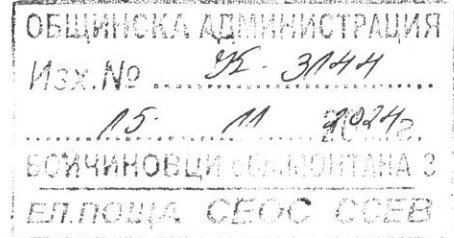 ОБЩИНСКА АДМИНИСТРАЦИЯ
Изх.№ УК-3144
15. 11 2024г.
БОЙЧИНОВЦИ обл.МОНТАНА 3
ЕЛ.ПОЩА СЕОС ССЕВ